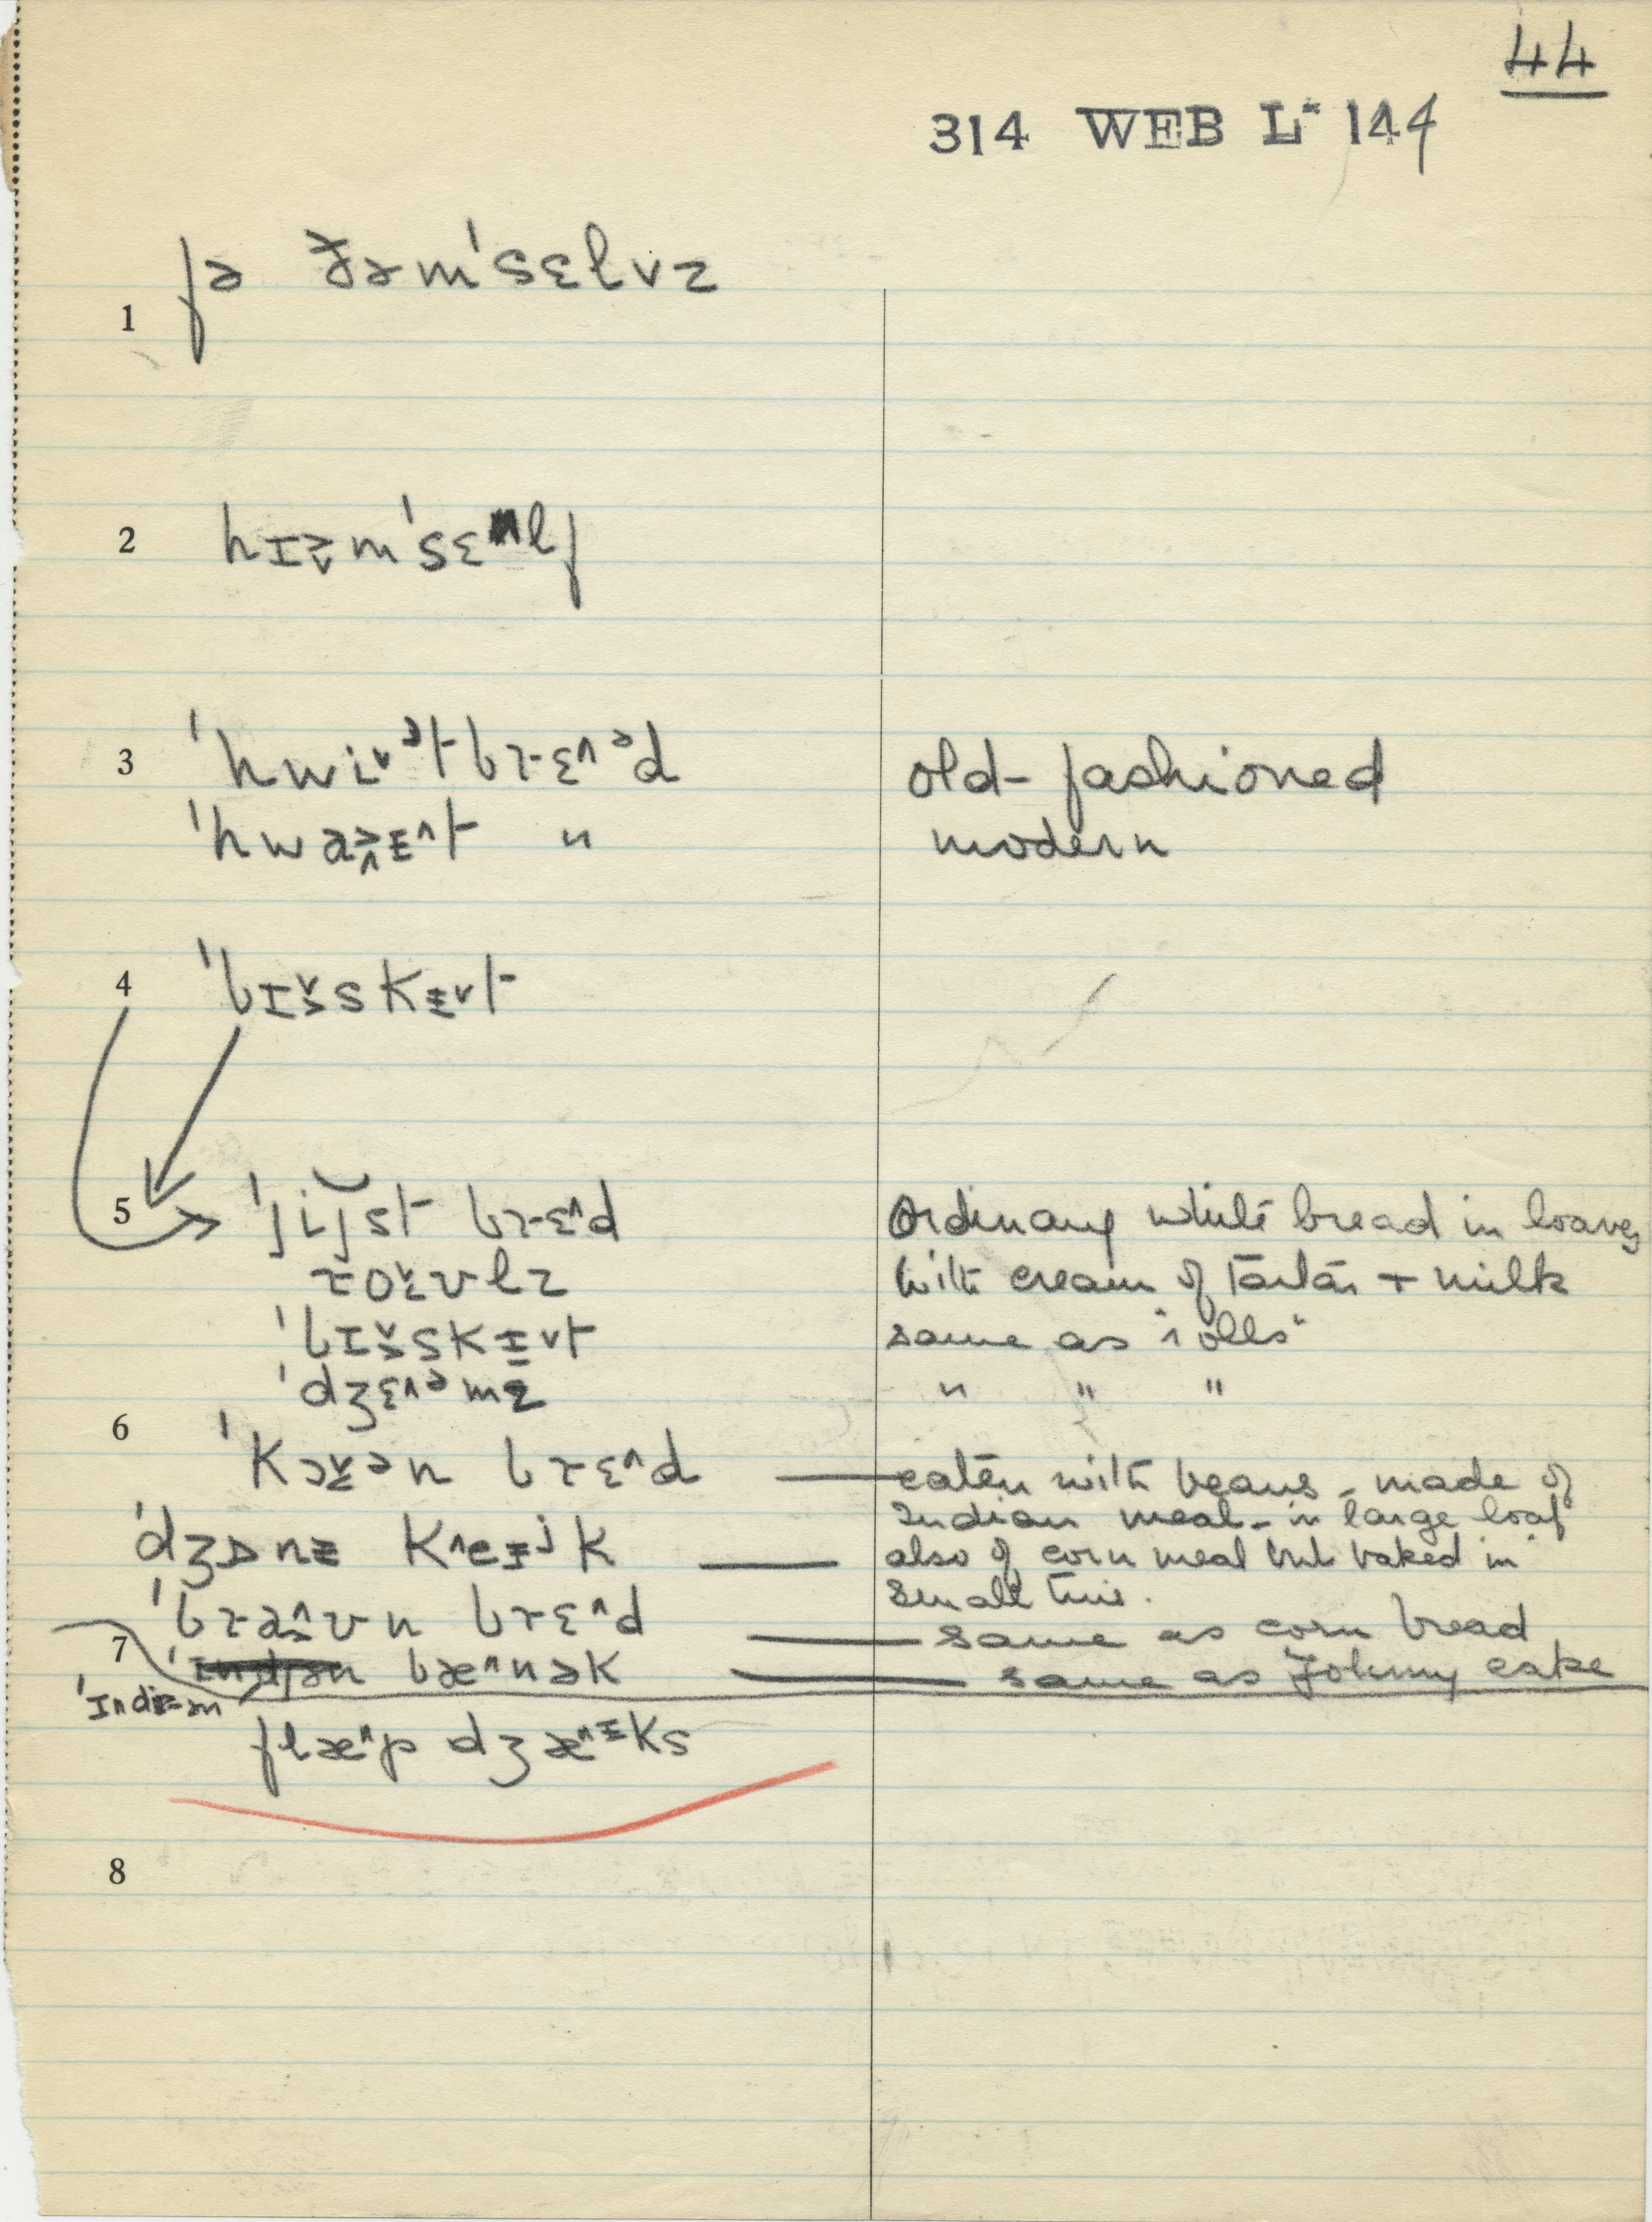 44
314 WEB L* 144
1 fə ðəm'sɛlvz
2 hɪə̬m'sɛlf
3 'hwi˅ᵊt brɛ˄ᵊd old-fashioned
'hwaɪ˄t " modern
4 'bɪ̬skɪ˅t
5 'jijst brɛ˄d Ordinary white bread in loaves
roʊlz with cream of tartar + milk
'bɪ̬skɪ˅t same as "rolls"
'dʒɛ˄ᵊmz " " "
6 'kɔən brɛ˄d — eaten with beans - made of
Indian meal - in large loaf
'dʒɒnɪ k˄eɪʲk — also of corn meal but baked in
small tins.
'bra˄ʊn brɛ˄d — same as corn bread
7 'ɪndjən bæ˄nək — same as Johnny cake
'ɪndɪən
flæ˄p dʒæ˄ᵻks
8